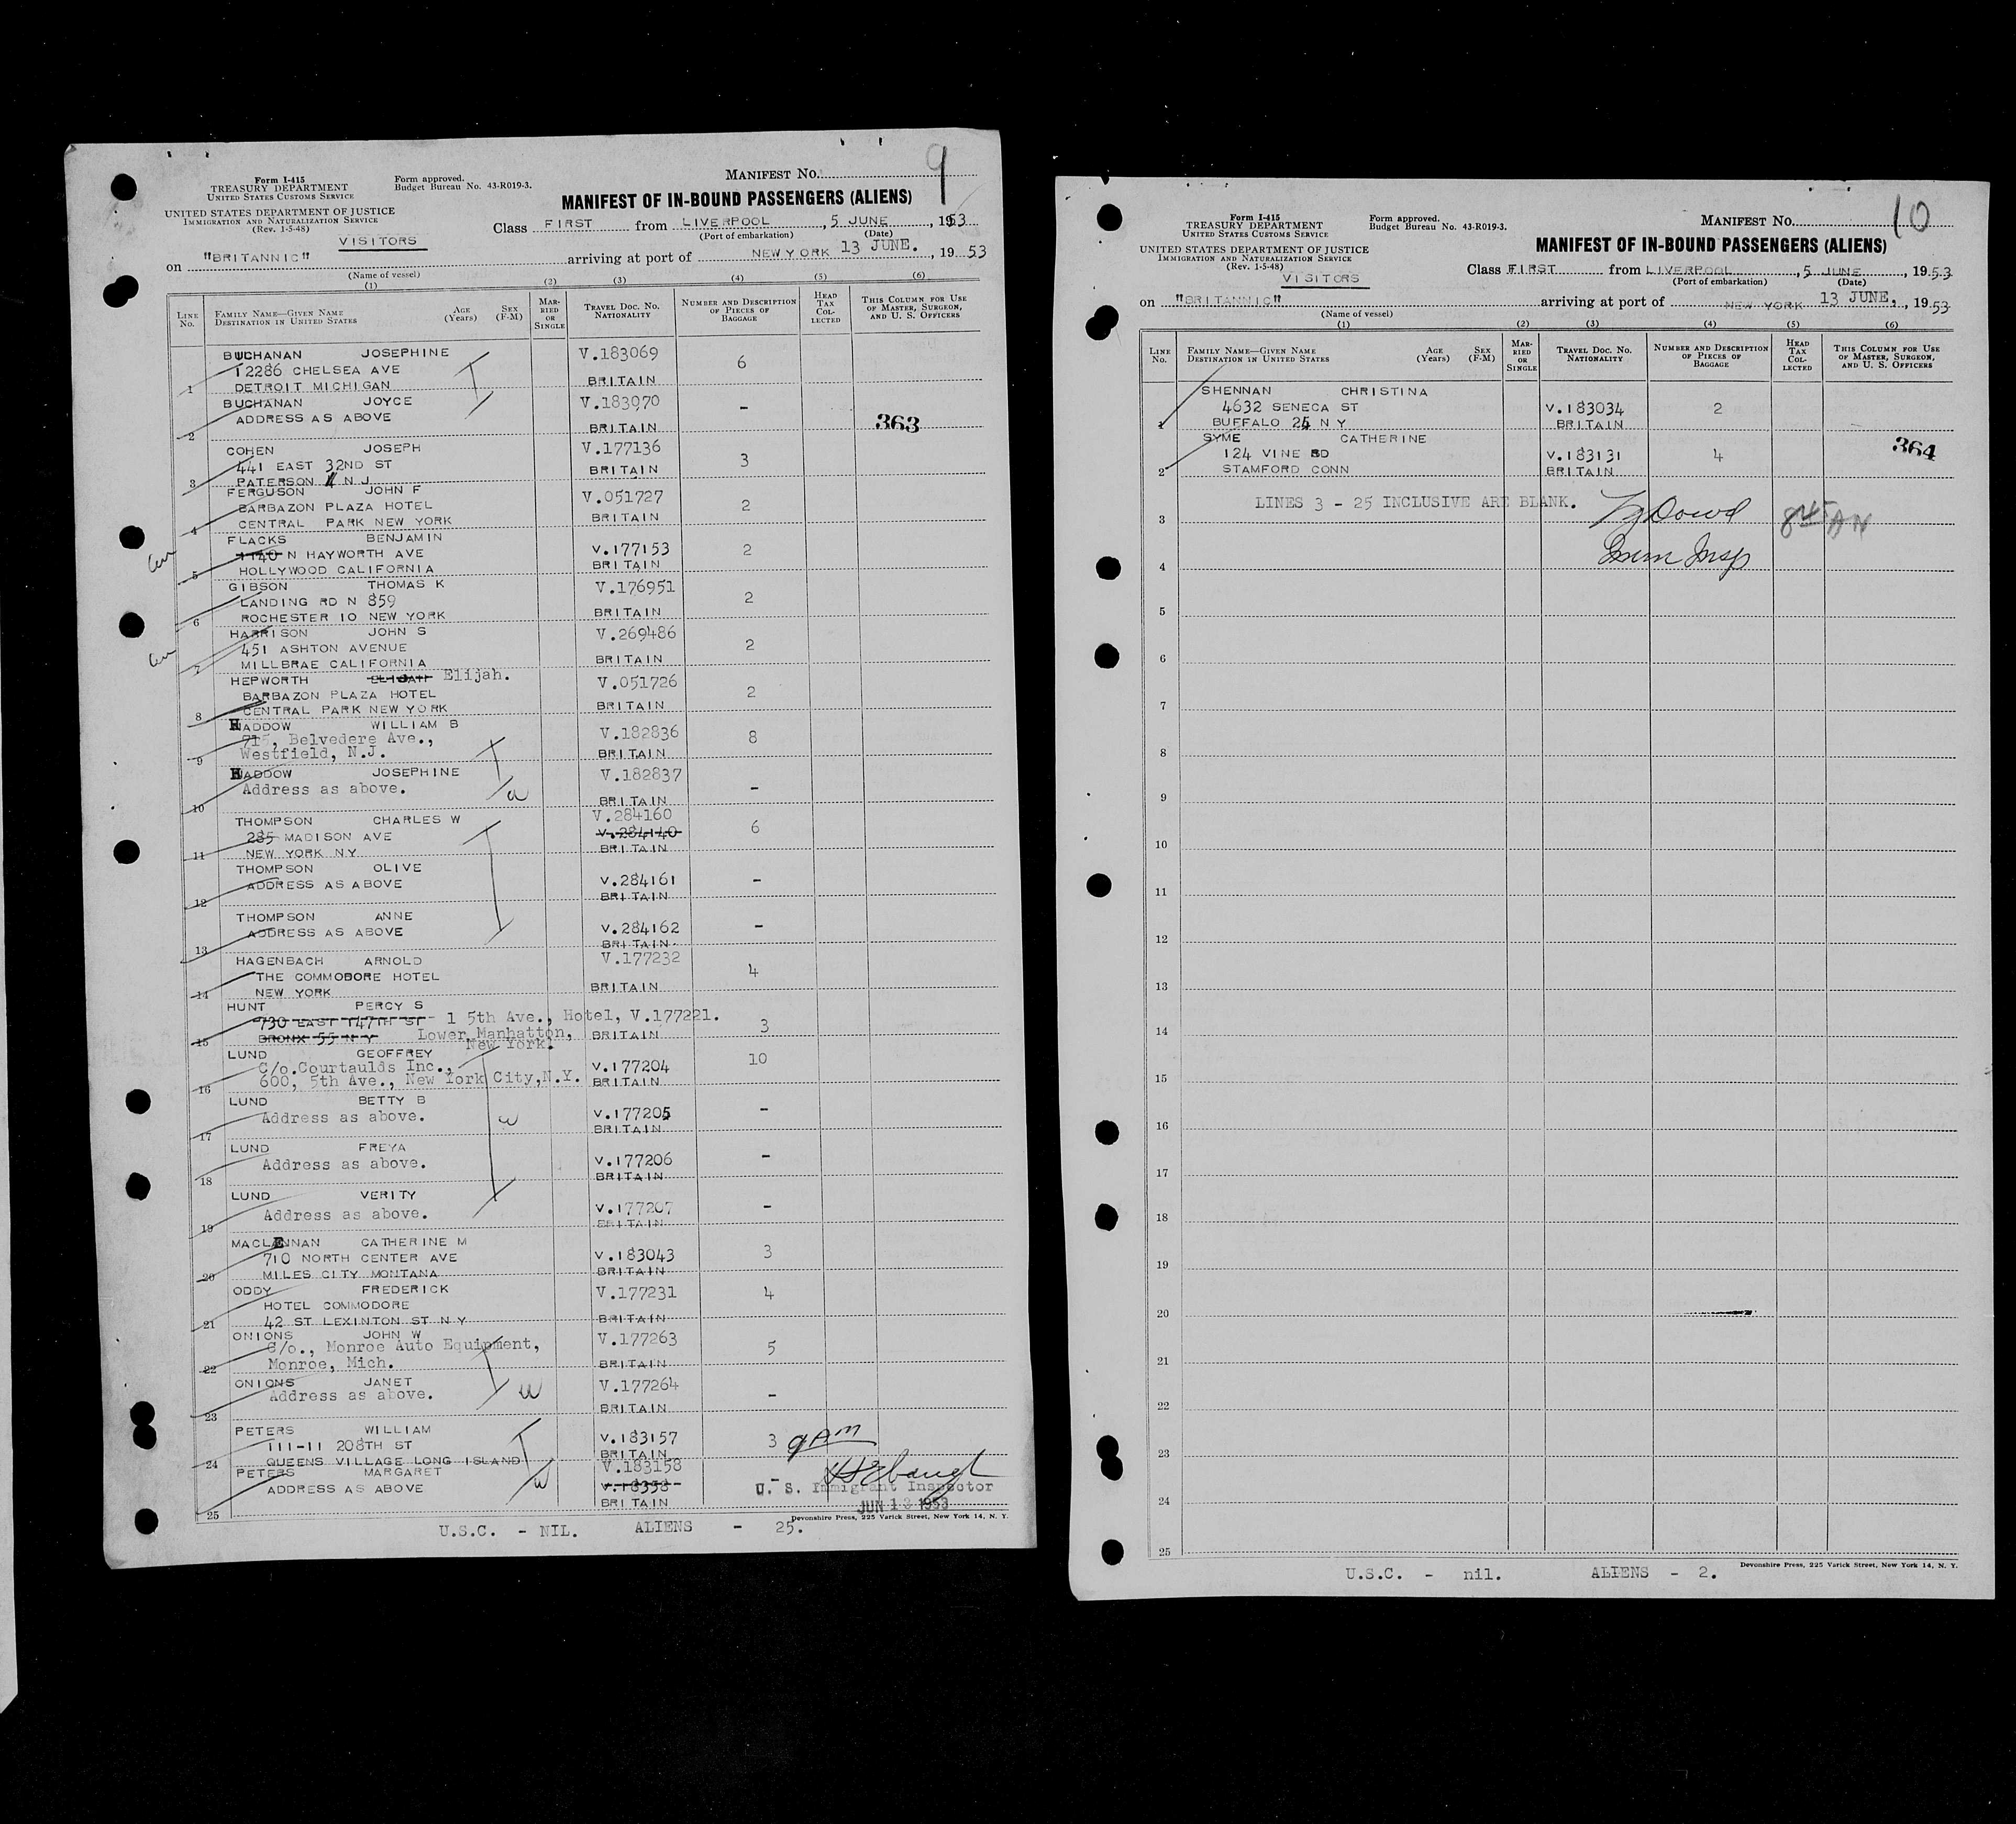 Form I-415
TREASURY DEPARTMENT
UNITED STATES CUSTOMS SERVICE
Form approved.
Budget Bureau No. 43-R019-3.
MANIFEST NO. 9
MANIFEST OF IN-BOUND PASSENGERS (ALIENS)
UNITED STATES DEPARTMENT OF JUSTICE
IMMIGRATION AND NATURALIZATION SERVICE
(Rev. 1-5-48)
VISITORS
Class FIRST from LIVERPOOL, 5 JUNE, 1953
(Port of embarkation) (Date)
on "BRITANNIC" arriving at port of NEW YORK 13 JUNE., 1953
(Name of vessel)
(1) (2) (3) (4) (5) (6)
LINE No. FAMILY NAME—GIVEN NAME DESTINATION IN UNITED STATES AGE (Years) SEX (F-M) MARRIED OR SINGLE TRAVEL DOC. NO. NATIONALITY NUMBER AND DESCRIPTION OF PIECES OF BAGGAGE HEAD TAX COLLECTED THIS COLUMN FOR USE OF MASTER, SURGEON, AND U. S. OFFICERS
BUCHANAN JOSEPHINE V.183069
12286 CHELSEA AVE 6
1 DETROIT MICHIGAN BRITAIN
BUCHANAN JOYCE V.183070
ADDRESS AS ABOVE - 363
2 BRITAIN
COHEN JOSEPH V.177136
441 EAST 32ND ST 3
3 PATERSON 4 N J BRITAIN
FERGUSON JOHN F V.051727
BARBAZON PLAZA HOTEL 2
4 CENTRAL PARK NEW YORK BRITAIN
FLACKS BENJAMIN
1140 N HAYWORTH AVE V.177153 2
5 HOLLYWOOD CALIFORNIA BRITAIN
GIBSON THOMAS K V.176951
LANDING RD N 859 2
6 ROCHESTER 10 NEW YORK BRITAIN
HARRISON JOHN S V.269486
451 ASHTON AVENUE 2
7 MILLBRAE CALIFORNIA BRITAIN
HEPWORTH ELIJAH Elijah. V.051726
BARBAZON PLAZA HOTEL 2
8 CENTRAL PARK NEW YORK BRITAIN
HADDOW WILLIAM B V.182836
715, Belvedere Ave., 8
9 Westfield, N.J. BRITAIN
HADDOW JOSEPHINE V.182837
Address as above. -
10 BRITAIN
THOMPSON CHARLES W V.284160
285 MADISON AVE V.284140 6
11 NEW YORK NY BRITAIN
THOMPSON OLIVE
ADDRESS AS ABOVE V.284161 -
12 BRITAIN
THOMPSON ANNE
ADDRESS AS ABOVE V.284162 -
13 BRITAIN
HAGENBACH ARNOLD V.177232
THE COMMODORE HOTEL 4
14 NEW YORK BRITAIN
HUNT PERCY S
730 EAST 147TH ST 1 5th Ave., Hotel, V.177221. 3
15 BRONX 55 N Y Lower Manhatton, BRITAIN
New York.
LUND GEOFFREY 10
C/o.Courtaulds Inc., V.177204
16 600, 5th Ave., New York City,N.Y. BRITAIN
LUND BETTY B
Address as above. V.177205 -
17 BRITAIN
LUND FREYA
Address as above. V.177206 -
18 BRITAIN
LUND VERITY
Address as above. V.177207 -
19 BRITAIN
MACLENNAN CATHERINE M
710 NORTH CENTER AVE V.183043 3
20 MILES CITY MONTANA BRITAIN
ODDY FREDERICK V.177231 4
HOTEL COMMODORE
21 42 ST LEXINTON ST N Y BRITAIN
ONIONS JOHN W V.177263
C/o., Monroe Auto Equipment, 5
22 Monroe, Mich. BRITAIN
ONIONS JANET V.177264
Address as above. -
23 BRITAIN
PETERS WILLIAM
111-11 208TH ST V.183157 3 9 AM
24 QUEENS VILLAGE LONG ISLAND BRITAIN
PETERS MARGARET V.183158
ADDRESS AS ABOVE V.18338 - U. S. Immigrant Inspector
25 BRITAIN JUN 13 1953
Devonshire Press, 225 Varick Street, New York 14, N. Y.
U.S.C. - NIL. ALIENS - 25.
Form I-415
TREASURY DEPARTMENT
UNITED STATES CUSTOMS SERVICE
Form approved.
Budget Bureau No. 43-R019-3.
MANIFEST NO. 10
MANIFEST OF IN-BOUND PASSENGERS (ALIENS)
UNITED STATES DEPARTMENT OF JUSTICE
IMMIGRATION AND NATURALIZATION SERVICE
(Rev. 1-5-48)
VISITORS
Class FIRST from LIVERPOOL, 5 JUNE, 1953
(Port of embarkation) (Date)
on "BRITANNIC" arriving at port of NEW YORK 13 JUNE., 1953
(Name of vessel)
(1) (2) (3) (4) (5) (6)
LINE No. FAMILY NAME—GIVEN NAME DESTINATION IN UNITED STATES AGE (Years) SEX (F-M) MARRIED OR SINGLE TRAVEL DOC. NO. NATIONALITY NUMBER AND DESCRIPTION OF PIECES OF BAGGAGE HEAD TAX COLLECTED THIS COLUMN FOR USE OF MASTER, SURGEON, AND U. S. OFFICERS
SHENNAN CHRISTINA
4632 SENECA ST V.183034 2
1 BUFFALO 24 N Y BRITAIN
SYME CATHERINE 364
124 VINE RD V.183131 4
2 STAMFORD CONN BRITAIN
LINES 3 - 25 INCLUSIVE ARE BLANK.
3 Dowd 845 AM
4 Imm Insp
5
6
7
8
9
10
11
12
13
14
15
16
17
18
19
20
21
22
23
24
25
Devonshire Press, 225 Varick Street, New York 14, N. Y.
U.S.C. - nil. ALIENS - 2.